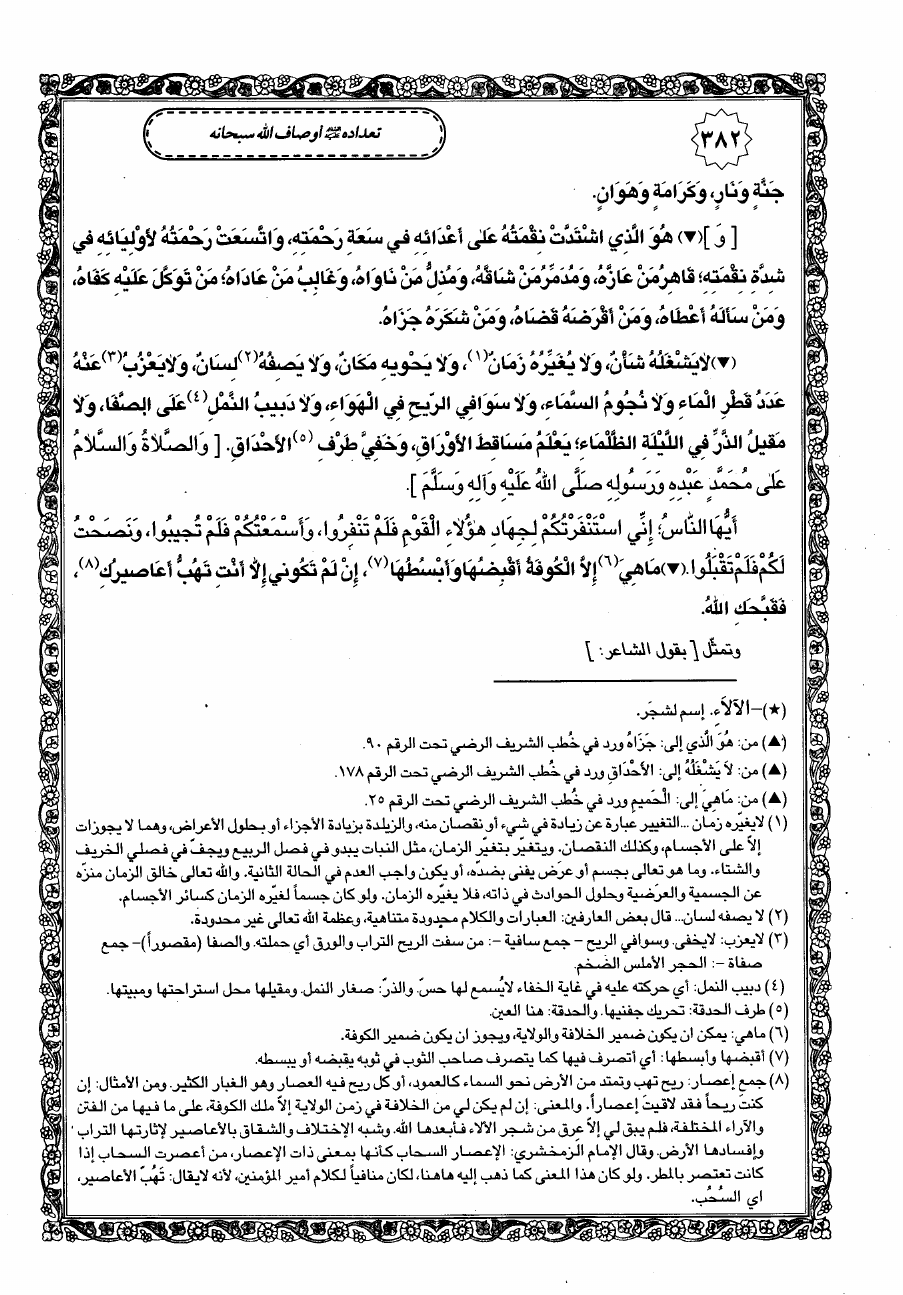 ٣٨٢
تعداده عليه السلام أوصاف الله سبحانه
جَنَّةٍ وَنَارٍ، وَكَرَامَةٍ وَهَوَانٍ.
[ وَ ](▼) هُوَ الَّذِي اشْتَدَّتْ نِقْمَتُهُ عَلىٰ أَعْدَائِهِ فِي سَعَةِ رَحْمَتِهِ، وَاتَّسَعَتْ رَحْمَتُهُ لأَوْلِيَائِهِ فِي
شِدَّةِ نِقْمَتِهِ؛ قَاهِرُ مَنْ عَازَّهُ، وَمُدَمِّرُ مَنْ شَاقَّهُ، وَمُذِلُّ مَنْ نَاوَاهُ، وَغَالِبُ مَنْ عَادَاهُ؛ مَنْ تَوَكَّلَ عَلَيْهِ كَفَاهُ،
وَمَنْ سَأَلَهُ أَعْطَاهُ، وَمَنْ أَقْرَضَهُ قَضَاهُ، وَمَنْ شَكَرَهُ جَزَاهُ.
(▼) لاَ يَشْغَلُهُ شَأْنٌ، وَلاَ يُغَيِّرُهُ زَمَانٌ(١)، وَلاَ يَحْوِيهِ مَكَانٌ، وَلاَ يَصِفُهُ(٢) لِسَانٌ، وَلاَ يَعْزُبُ(٣) عَنْهُ
عَدَدُ قَطْرِ الْمَاءِ وَلاَ نُجُومُ السَّمَاءِ، وَلاَ سَوَافِي الرّيحِ فِي الْهَوَاءِ، وَلاَ دَبِيبُ النَّمْلِ(٤) عَلَى الصَّفَا، وَلاَ
مَقِيلُ الذَّرِّ فِي اللَّيْلَةِ الظَّلْمَاءِ؛ يَعْلَمُ مَسَاقِطَ الأَوْرَاقِ، وَخَفِيَّ طَرْفِ(٥) الأَحْدَاقِ. [ وَالصَّلاَةُ وَالسَّلاَمُ
عَلىٰ مُحَمَّدٍ عَبْدِهِ وَرَسُولِهِ صَلَّى اللهُ عَلَيْهِ وَآلِهِ وَسَلَّمَ ].
أَيُّهَا النَّاسُ؛ إِنِّي اسْتَنْفَرْتُكُمْ لِجِهَادِ هٰؤُلاَءِ الْقَوْمِ فَلَمْ تَنْفِرُوا، وَأَسْمَعْتُكُمْ فَلَمْ تُجِيبُوا، وَنَصَحْتُ
لَكُمْ فَلَمْ تَقْبَلُوا. (▼) مَا هِيَ(٦) إِلاَّ الْكُوفَةُ أَقْبِضُهَا وَأَبْسُطُهَا(٧)، إِنْ لَمْ تَكُونِي إِلاَّ أَنْتِ تَهُبُّ أَعَاصِيرُكِ(٨)،
فَقَبَّحَكِ اللهُ.
وتمثّل [ بقول الشاعر: ]
(★)-الآلاَء. إسم لشجَر.
(▲) من: هُوَ الَّذي إلى: جَزَاهُ ورد في خُطب الشريف الرضي تحت الرقم ٩٠.
(▲) من: لاَ يَشْغَلُهُ إلى: الأَحْدَاقِ ورد في خُطب الشريف الرضي تحت الرقم ١٧٨.
(▲) من: مَاهِيَ إلى: الْحَميمِ ورد في خُطب الشريف الرضي تحت الرقم ٢٥.
(١) لايغيّره زمان ...التغيير عبارة عن زيادة في شيء أو نقصان منه، والزيادة بزيادة الأجزاء أو بحلول الأعراض، وهما لا يجوزان
إلاّ على الأجسام، وكذلك النقصان. ويتغيّر بتغيّر الزمان، مثل النبات يبدو في فصل الربيع ويجفّ في فصلي الخريف
والشتاء. وما هو تعالى بجسم أو عرَض يفنى بضدّه، أو يكون واجب العدم في الحالة الثانية. والله تعالى خالق الزمان منزّه
عن الجسمية والعرَضية وحلول الحوادث في ذاته، فلا يغيّره الزمان. ولو كان جسماً لغيّره الزمان كسائر الأجسام.
(٢) لا يصفه لسان... قال بعض العارفين: العبارات والكلام محدودة متناهية، وعظمة الله تعالى غير محدودة.
(٣) لايعزب: لايخفى. وسوافي الريح - جمع سافية -: من سفت الريح التراب والورق أي حملته. والصفا (مقصوراً)- جمع
صفاة -: الحجر الأملس الضخم.
(٤) دبيب النمل: أي حركته عليه في غاية الخفاء لايُسمع لها حسّ. والذرّ: صغار النمل. ومقيلها محل استراحتها ومبيتها.
(٥) طرف الحدقة: تحريك جفنيها. والحدقة: هنا العين.
(٦) ماهي: يمكن ان يكون ضمير الخلافة والولاية، ويجوز ان يكون ضمير الكوفة.
(٧) أقبضها وأبسطها: أي أتصرف فيها كما يتصرف صاحب الثوب في ثوبه يقبضه أو يبسطه.
(٨) جمع إعصار: ريح تهب وتمتد من الأرض نحو السماء كالعمود، أو كلّ ريح فيه العصار وهو الغبار الكثير. ومن الأمثال: إن
كنتَ ريحاً فقد لاقيتَ إعصاراً. والمعنى: إن لم يكن لي من الخلافة في زمن الولاية إلاّ ملك الكوفة، على ما فيها من الفتن
والآراء المختلفة، فلم يبق لي إلاّ عرق من شجر الآلاء فأبعدها الله. وشبه الإختلاف والشقاق بالأعاصير لإثارتها التراب
وإفسادها الأرض. وقال الإمام الزمخشري: الإعصار السحاب كأنها بمعنى ذات الإعصار، من أعصرت السحاب إذا
كانت تعتصر بالمطر. ولو كان هذا المعنى كما ذهب إليه هاهنا، لكان منافياً لكلام أمير المؤمنين، لأنه لايقال: تَهُبّ الأعاصير،
اي السُحُب.